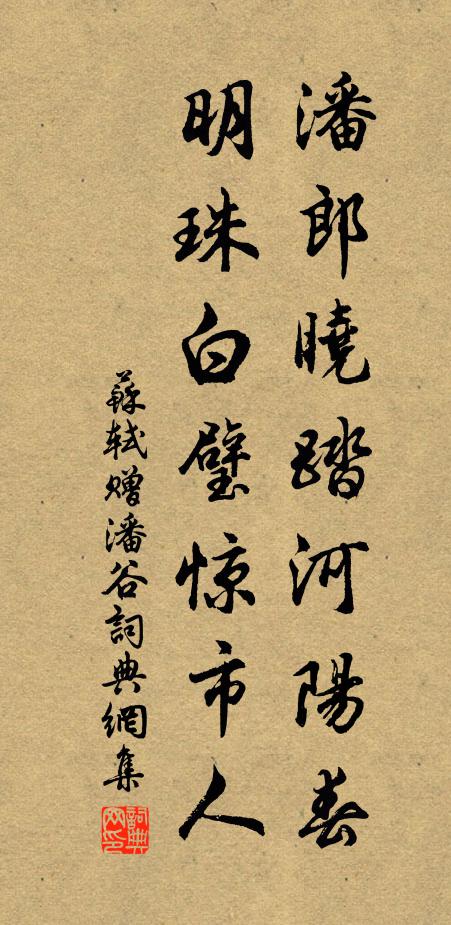 潘郎曉踏河陽春
明珠白璧惊市人
蘇軾赠潘谷詞典網集
詞典网印